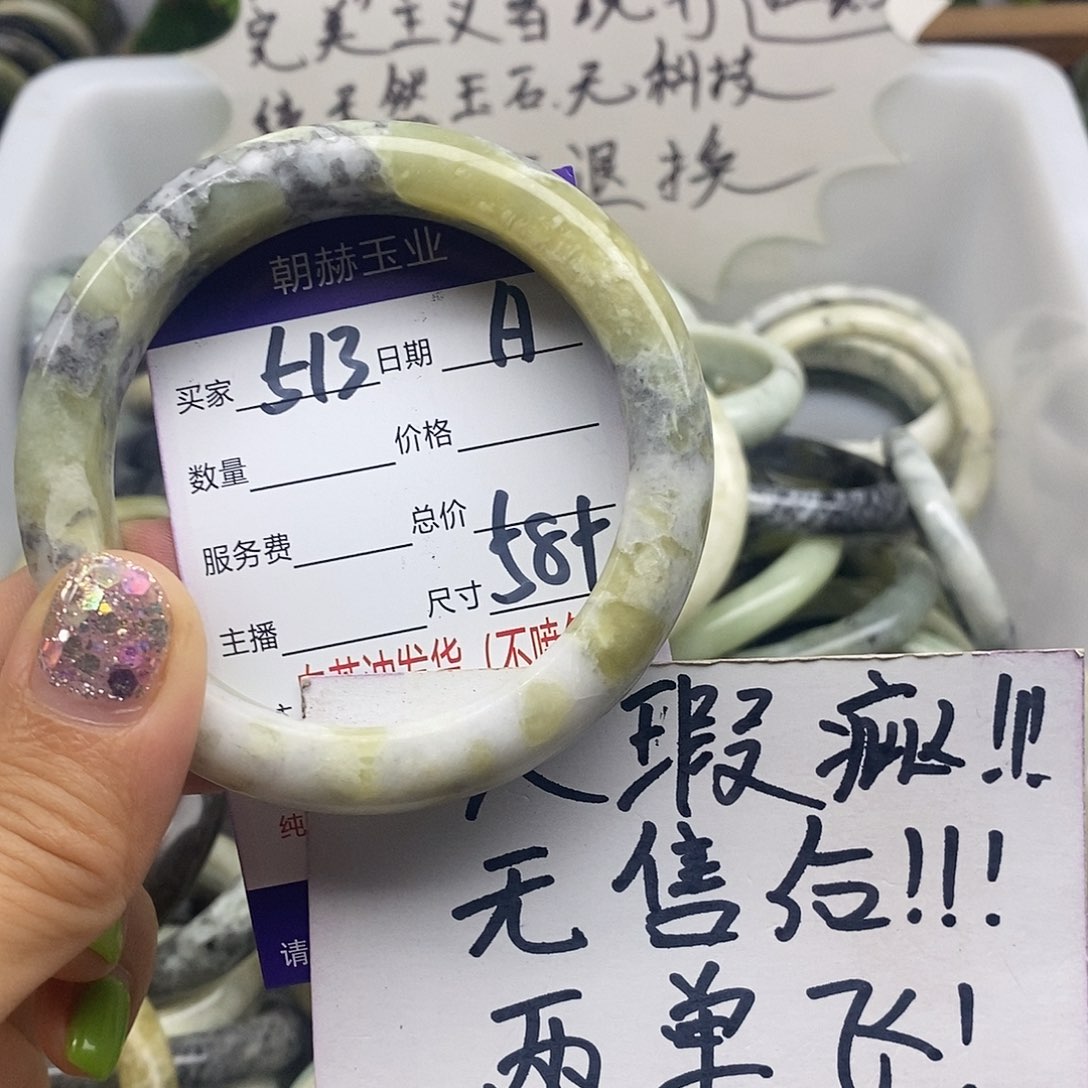 完美主义者慎拍
纯天然玉石.无科技
退换
朝赫玉业
买家 513 日期 A
数量 价格
服务费 总价
主播 尺寸 58+
白茶油发货(不喷
纯
请
大瑕疵!!!
无售后!!!
两单飞!